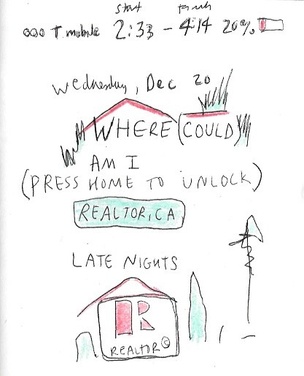 start finish
ooo T mobile 2:33 - 4:14 20%
Wednesday, Dec 20
WHERE (COULD)
AM I
(PRESS HOME TO UNLOCK)
REALTOR.CA
LATE NIGHTS
R
REALTOR®